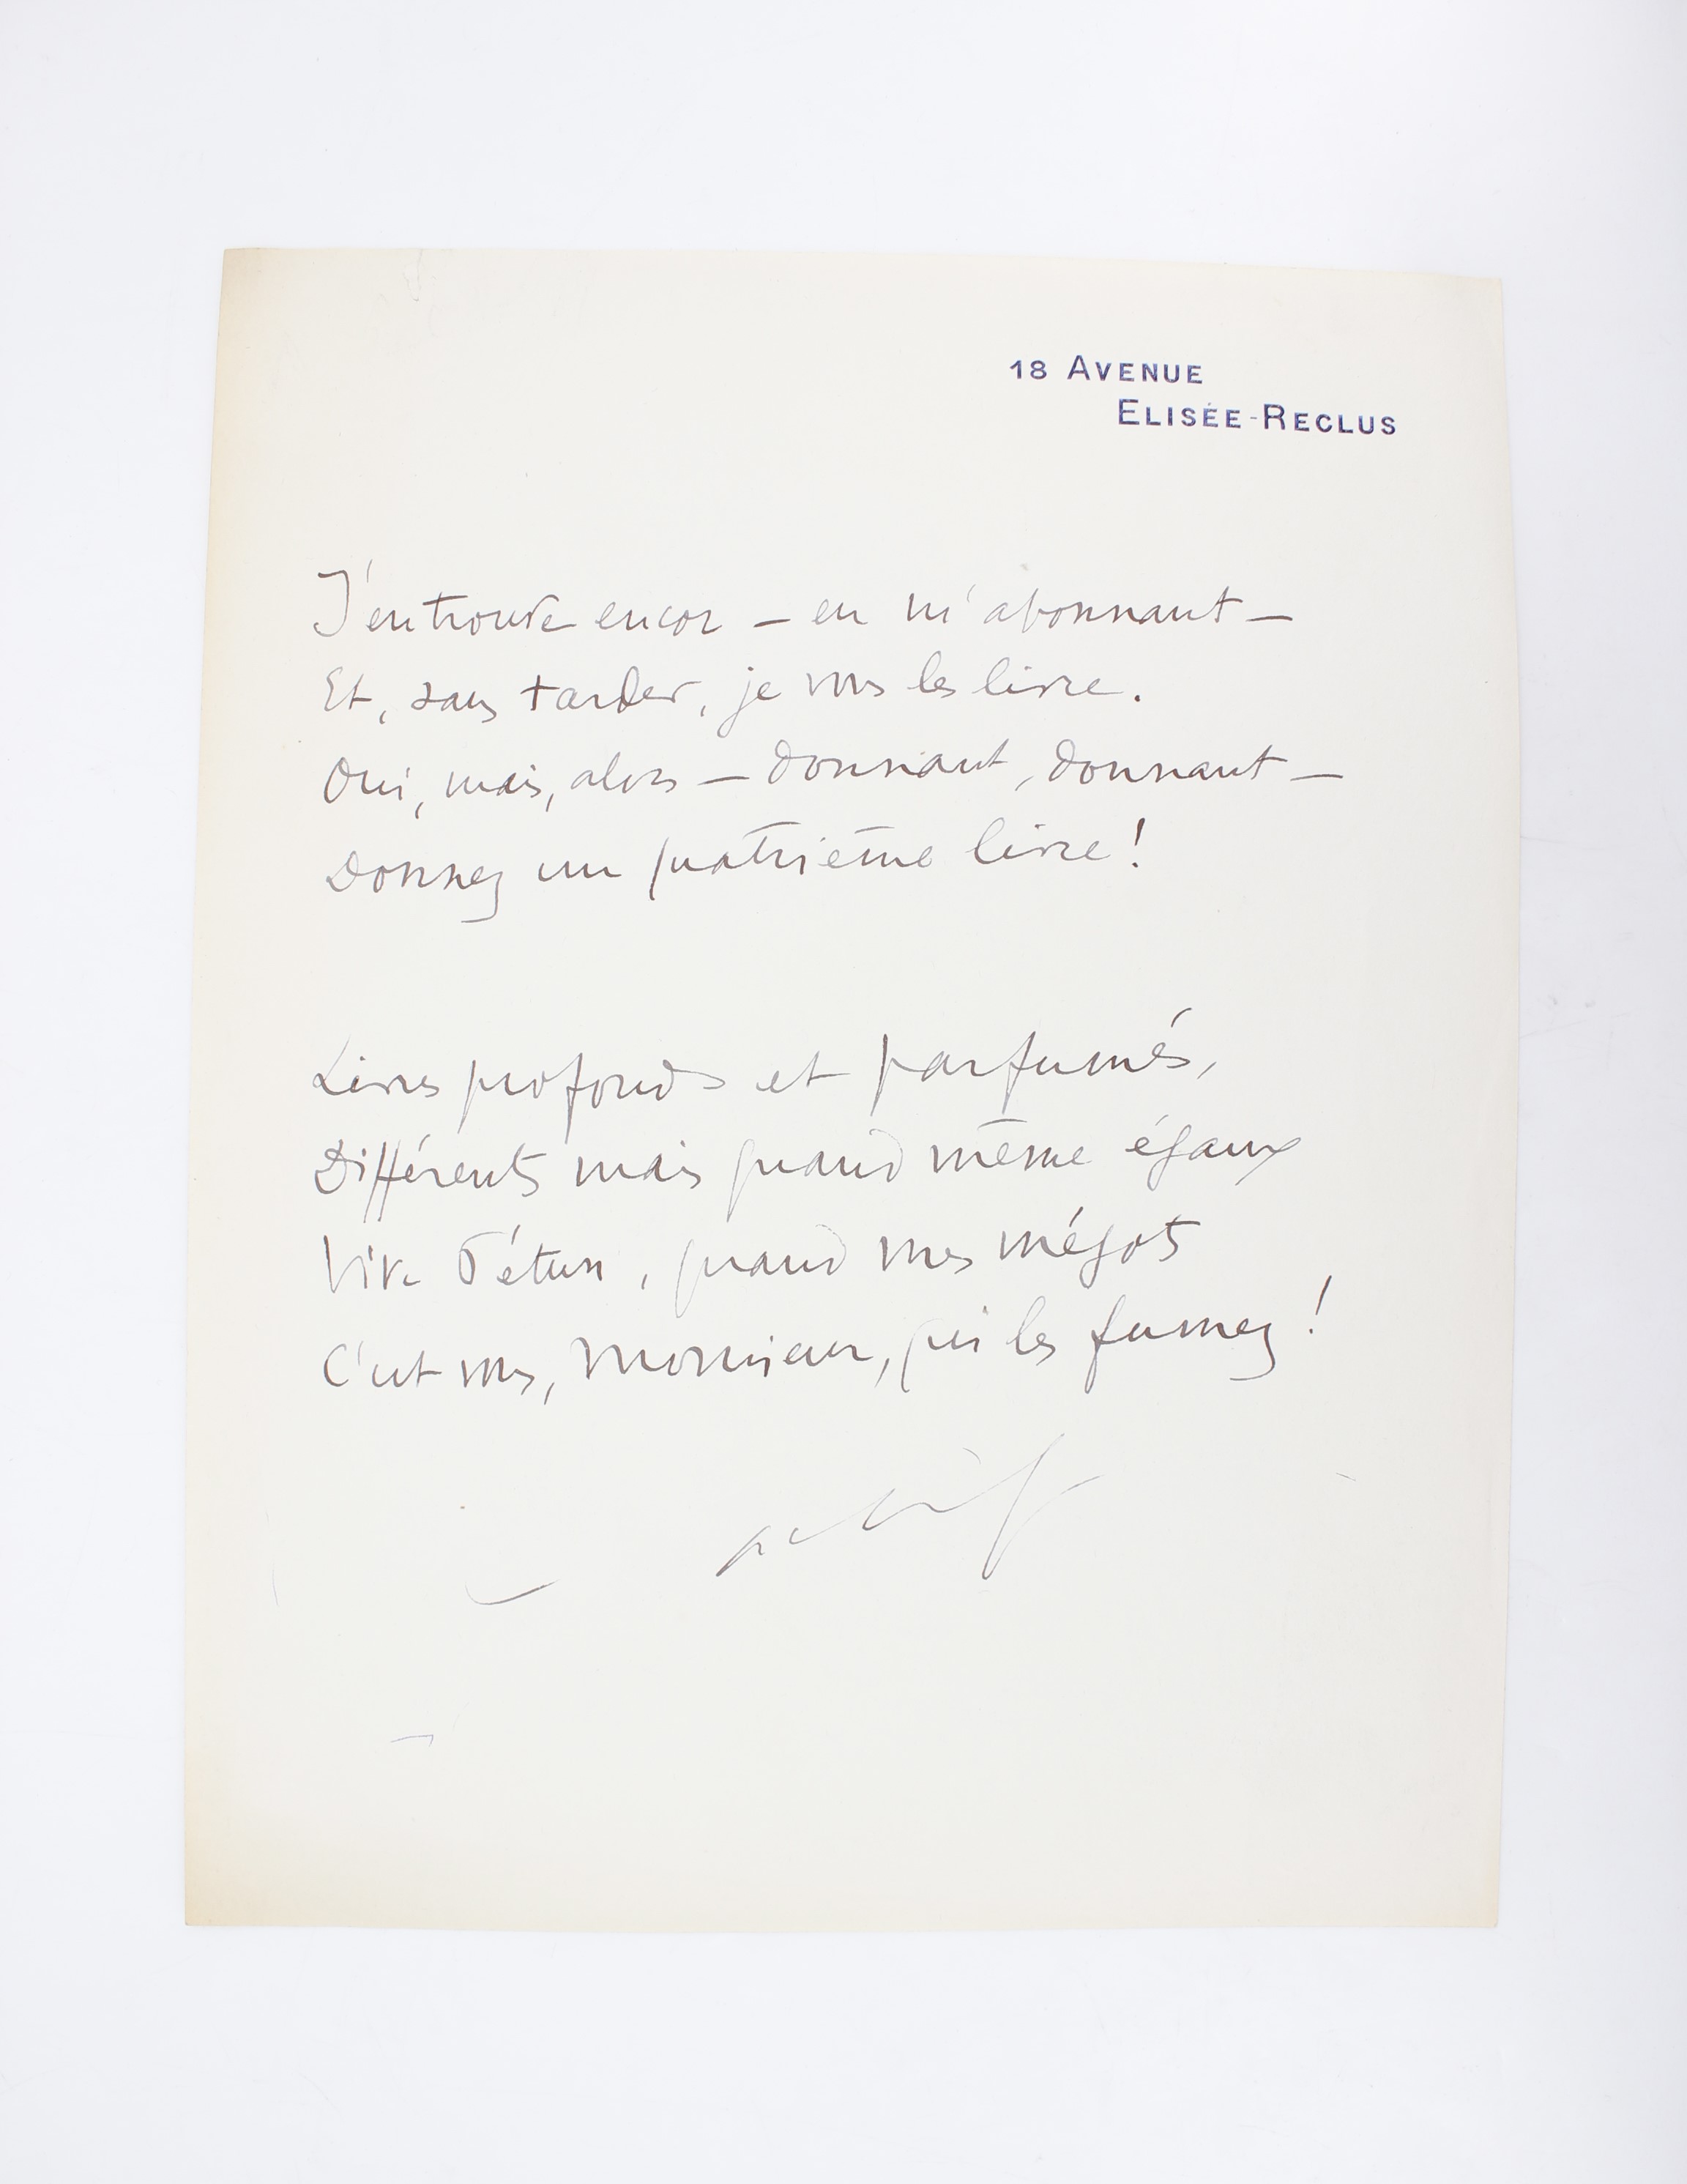 18 AVENUE
ELISÉE-RECLUS
J'en trouve encor – en m'abonnant –
Et, sans tarder, je vous les livre.
Oui, mais, alors – donnant, donnant –
Donnez un quatrième livre !
Livres profonds et parfumés,
Différents mais quand même égaux
Vive Pétun, quand mes mégots
C'est vous, Monsieur, qui les fumez !